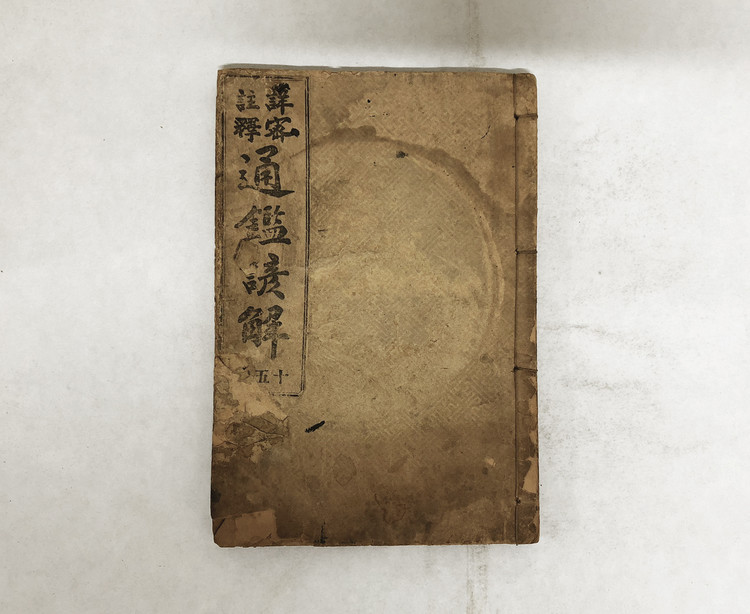 詳密註釋
通鑑諺解
十五